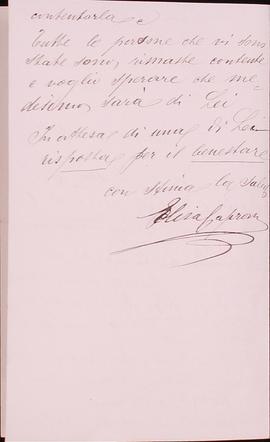 contentarla e
Tutte le persone che vi sono
state sono, rimaste contente
e voglio sperare che me-
desimo sarà di Lei
In attesa di una di Lei
risposta per il benestare
con stima la Saluto
Elisa